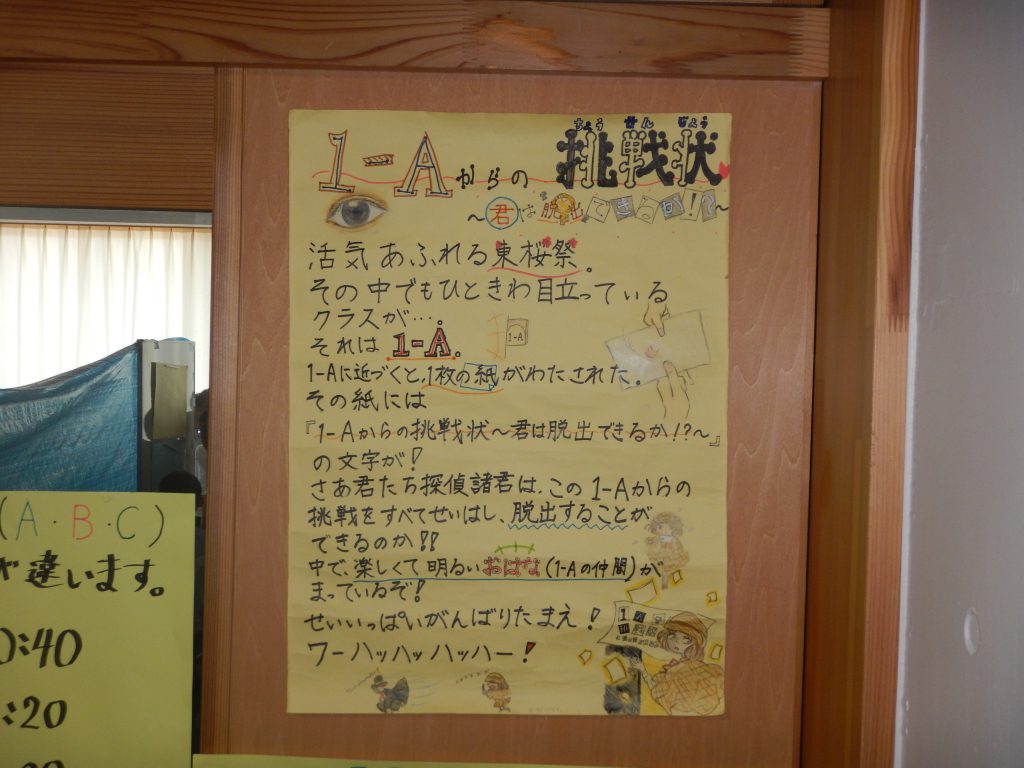 1-Aからの挑戦状
ちょうせんじょう
～君は脱出できるか!?～
活気あふれる東桜祭。
その中でもひときわ目立っている
クラスが…。
それは1-A。
1-A
1-Aに近づくと、1枚の紙がわたされた。
その紙には
『1-Aからの挑戦状～君は脱出できるか!?～』
の文字が!
さあ君たち探偵諸君は、この1-Aからの
挑戦をすべてせいはし、脱出することが
できるのか!!
中で、楽しくて明るいおはな(1-Aの仲間)が
まっているぞ!
せいいっぱいがんばりたまえ!
ワーハッハッハッハー!
(A・B・C)
違います。
0:40
:20